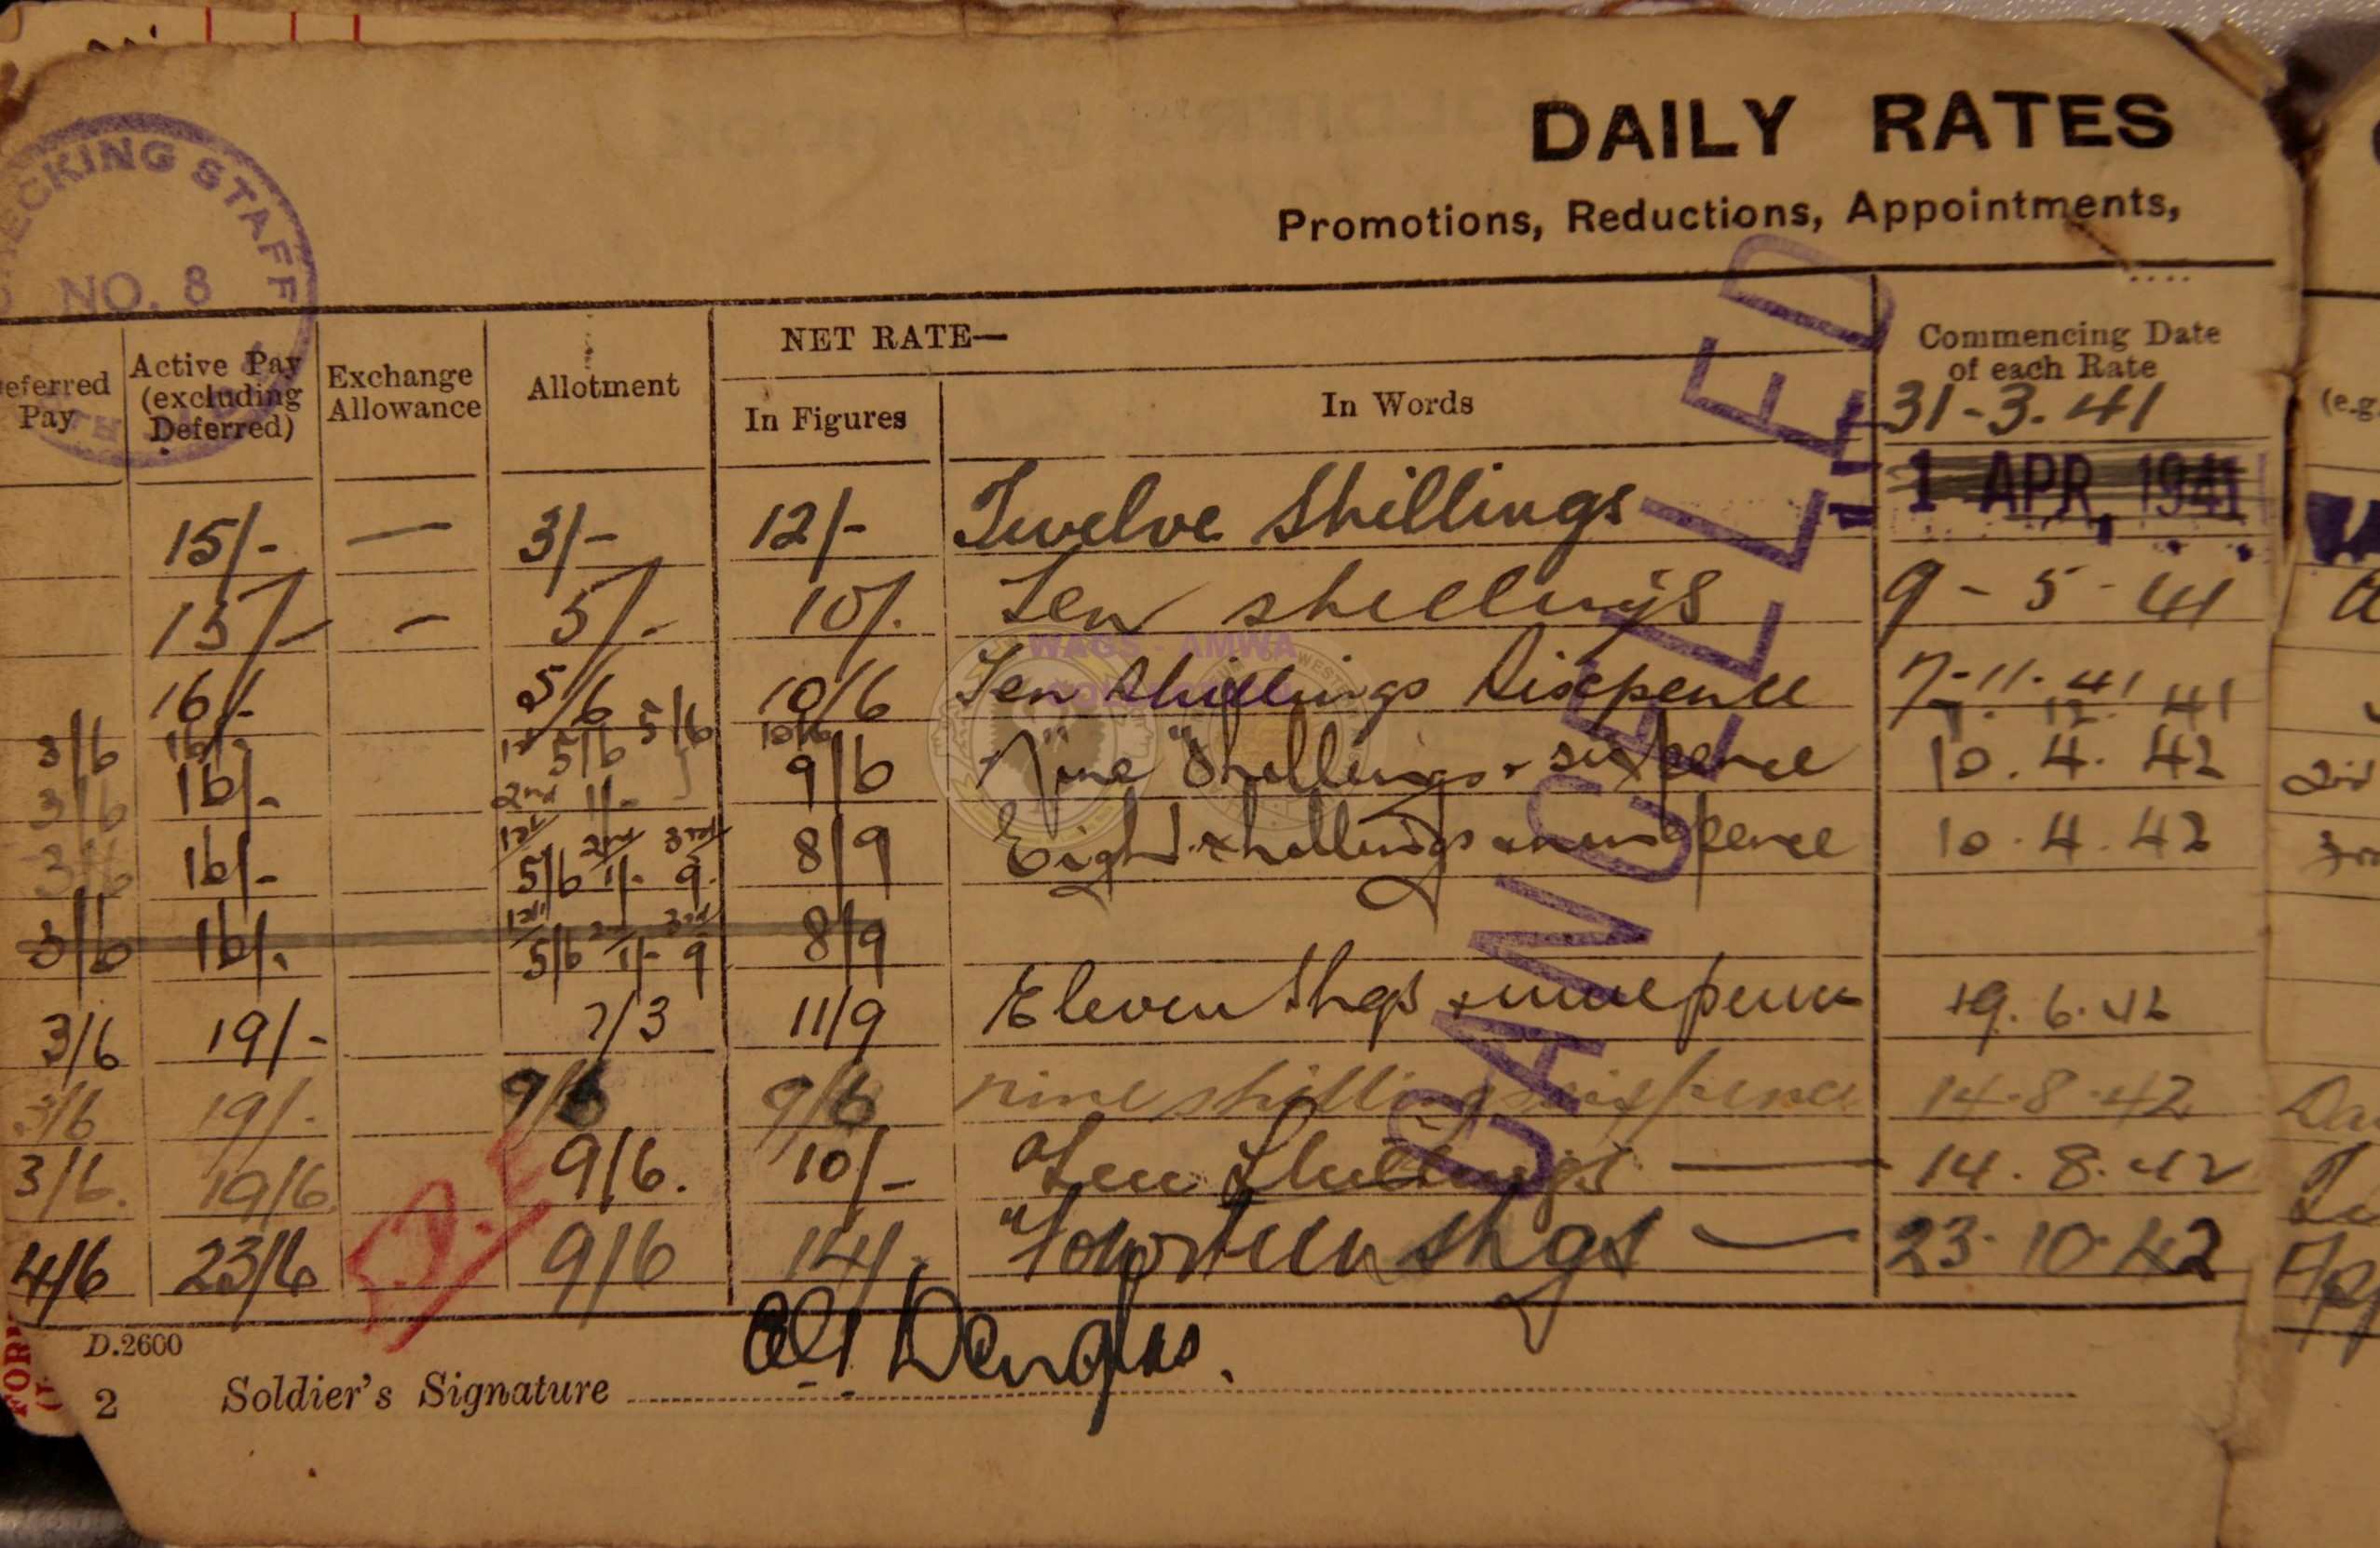 DAILY RATES
Promotions, Reductions, Appointments,
CHECKING STAFF
NO. 8
eferred Pay
Active Pay (excluding Deferred)
Exchange Allowance
Allotment
NET RATE—
In Figures
In Words
Commencing Date of each Rate
(e.g
31-3.41
15/- — 3/- 12/- Twelve Shillings 1 APR. 1941
15/- - 5/- 10/. Ten shillings 9-5-41
16/- 5/6 10/6 Ten Shillings Sixpence 7-11-41
3/6 16/- 1st 5/6 5/6 10/6 " " 12. 41
3/6 16/- 2nd 1/- 9/6 Nine Shillings & sixpence 10.4.42
3/6 16/- 1st 5/6 2nd 1/- 3rd 9. 8/9 Eight shillings & ninepence 10.4.42
3/6 16/. 1st 5/6 2nd 1/- 3rd 9 8/9
3/6 19/- 7/3 11/9 Eleven Shgs & ninepence 19.6.42
3/6 19/- 9/6 9/6 nine shillings sixpence 14.8.42
3/6. 19/6 9/6. 10/- Ten Shillings — 14.8.42
4/6 23/6 9/6 14/. Fourteen shgs — 23.10.42
CANCELLED
D.2600
2 Soldier's Signature
WAGS - AMWA